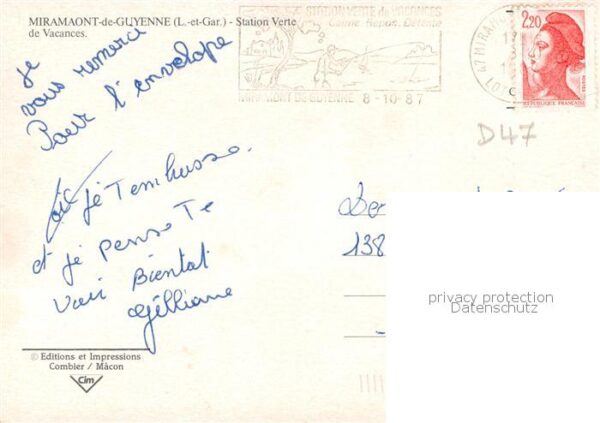 MIRAMAONT-de-GUYENNE (L.-et-Gar.) - Station Verte
de Vacances.
STATION VERTE de VACANCES
Calme Repos Détente
MIRAMONT DE GUYENNE 8-10-87
47 MIRAM
LOT
2,20
REPUBLIQUE FRANÇAISE
D47
je
vous remerci
Pour l'envelope
je T'embrasse.
et je pense Te
Voir Bientot
Gilliane
138
privacy protection
Datenschutz
© Editions et Impressions
Combier / Mâcon
Cim